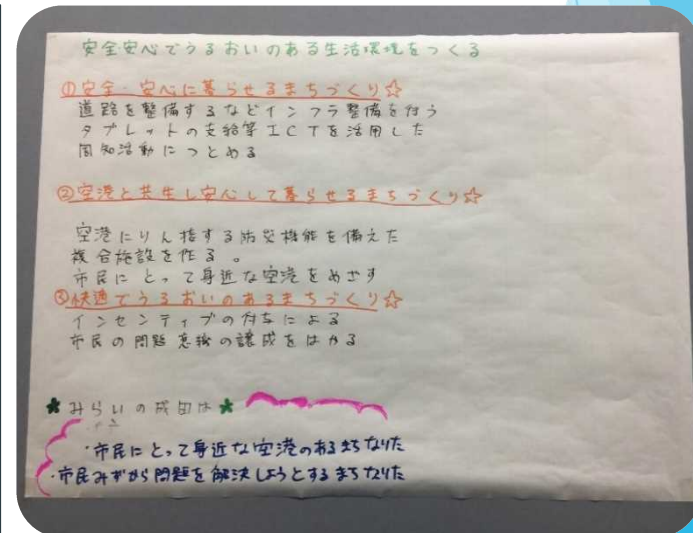 安全安心でうるおいのある生活環境をつくる
①安全・安心に暮らせるまちづくり☆
道路を整備するなどインフラ整備を行う
タブレットの支給等ICTを活用した
周知活動につとめる
②空港と共生し安心して暮らせるまちづくり☆
空港にりん接する防災機能を備えた
複合施設を作る。
市民にとって身近な空港をめざす
③快適でうるおいのあるまちづくり☆
インセンティブの付与による
市民の問題意識の醸成をはかる
★みらいの成田は★
・市民にとって身近な空港のあるまち なりた
・市民みずから問題を解決しようとするまち なりた